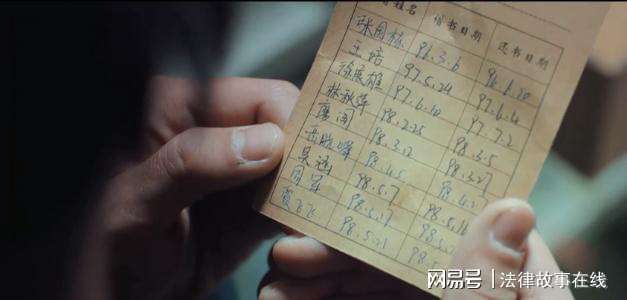 姓名 借书日期 还书日期
张国栋 96.3.6 96.6.20
王培 97.5.24 97.6.4
徐展雄 97.6.10 97.7.2
林秋萍 98.2.25 98.3.5
廖闻 98.3.12 98.3.27
岳晓峰 98.4.5 98.4.27
吴涵 98.5.7 98.5.16
周军 98.5.17 98.5.2
贾飞飞 98.5.21 98.5
网易号 法律故事在线